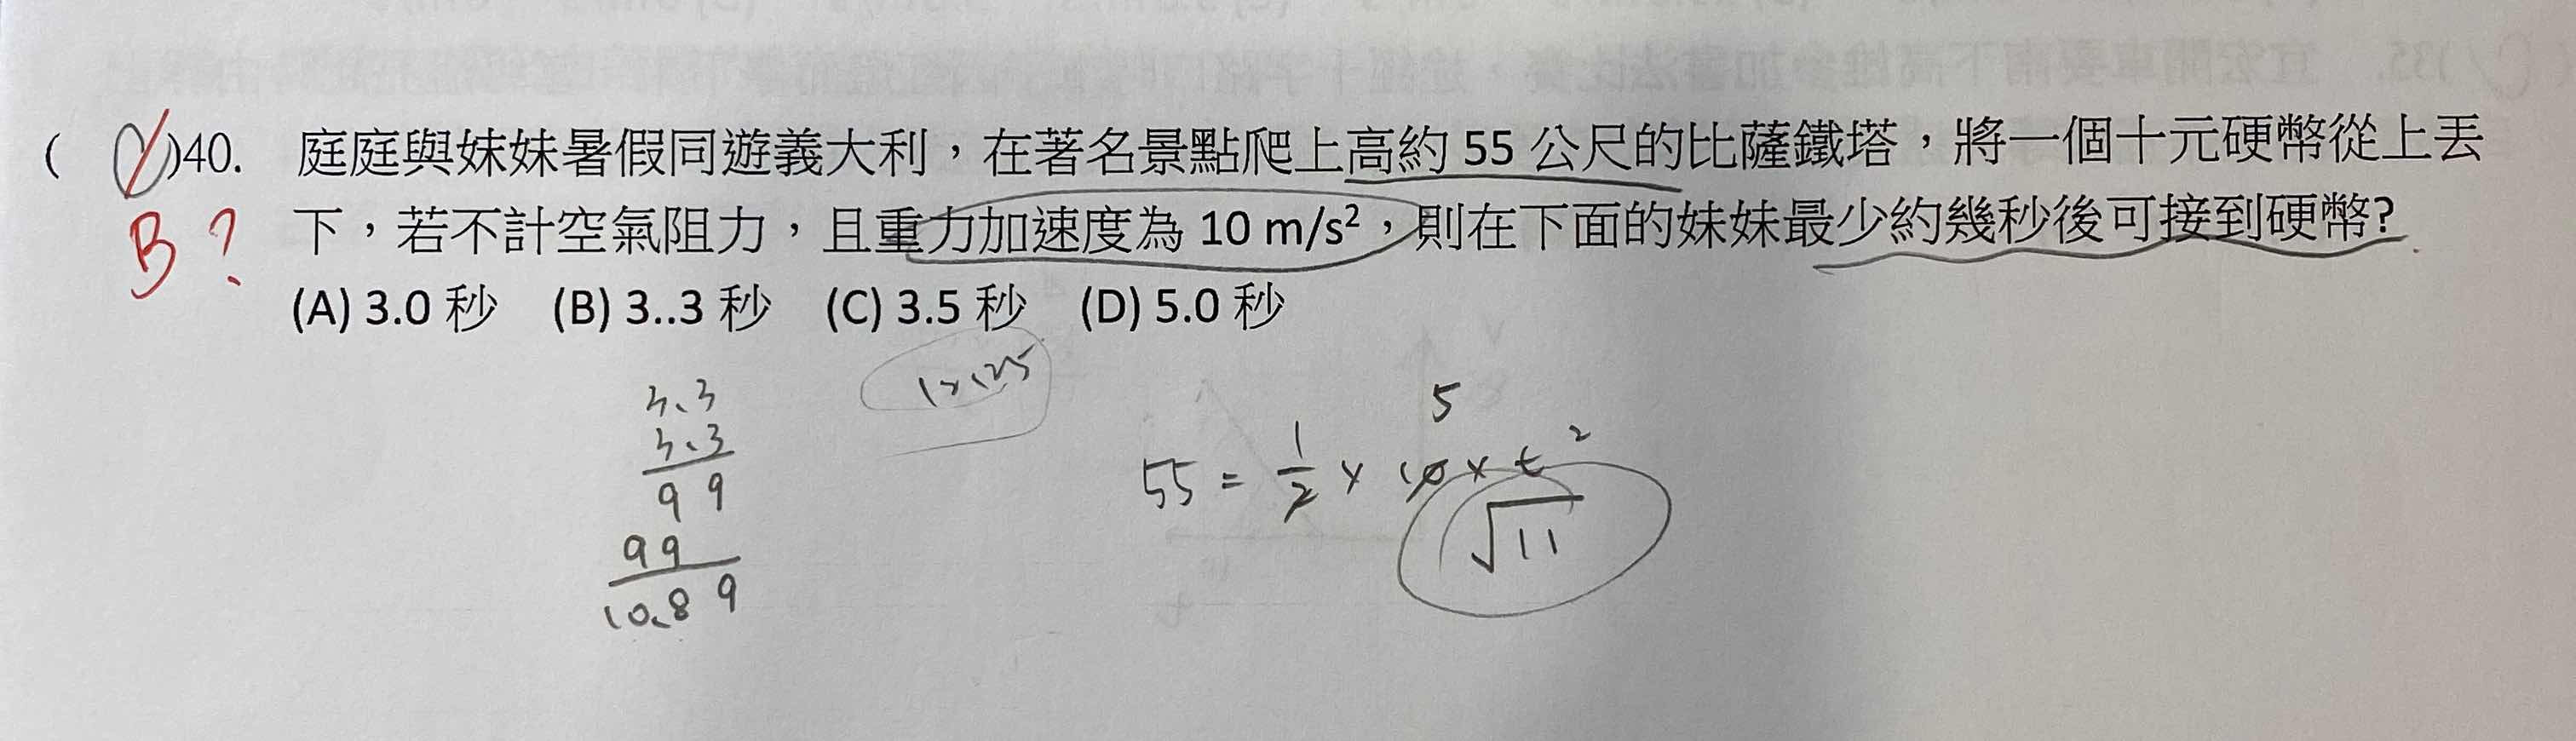 ( )40. 庭庭與妹妹暑假同遊義大利，在著名景點爬上高約 55 公尺的比薩鐵塔，將一個十元硬幣從上丟
B? 下，若不計空氣阻力，且重力加速度為 10 m/s²，則在下面的妹妹最少約幾秒後可接到硬幣?
(A) 3.0 秒 (B) 3..3 秒 (C) 3.5 秒 (D) 5.0 秒
3.3
3.3
99
99
10.89
12.25
5
55 = 1/2 × 10 × t²
√11